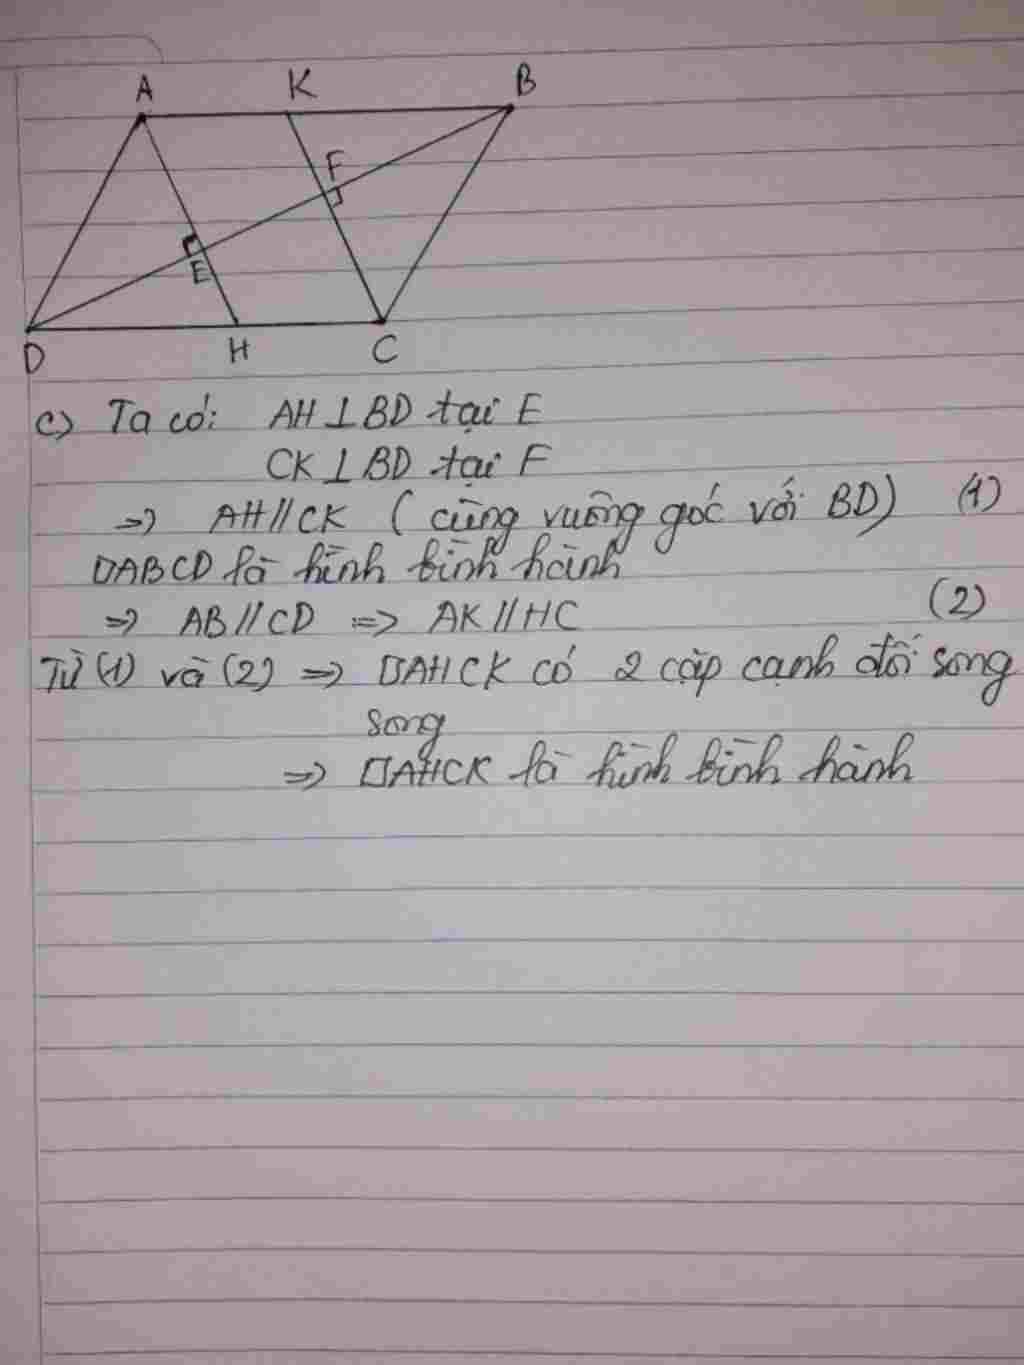 A K B
F
E
D H C
c) Ta có: AH⊥BD tại E
CK⊥BD tại F
=> AH//CK (cùng vuông góc với BD) (1)
□ABCD là hình bình hành
=> AB//CD => AK//HC (2)
Từ (1) và (2) => □AHCK có 2 cặp cạnh đối song
song
=> □AHCK là hình bình hành